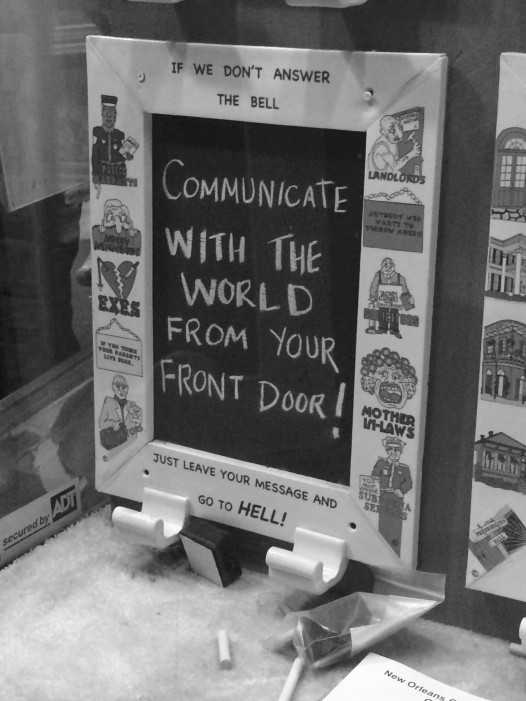 IF WE DON'T ANSWER
THE BELL
COMMUNICATE
WITH THE
WORLD
FROM YOUR
FRONT DOOR!
LANDLORDS
EXES
IF YOU THINK
YOUR PARENTS
LIVE HERE.
MOTHER
IN-LAWS
JUST LEAVE YOUR MESSAGE AND
GO TO HELL!
secured by ADT
New Orleans